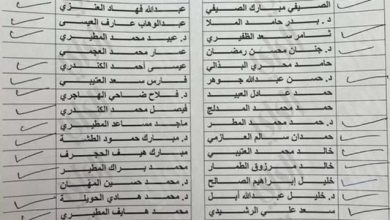 الصيفي مبارك الصيفي
د. بدر حامد الملا
ثامر سعد الظفيري
د. جنان محسن رمضان
حامد محري البذالي
د. حسن عبدالله جوهر
حمد عادل العبيد
حمد محمد المدلج
د. حمد محمد المطر
حمدان سالم العازمي
خالد محمد العتيبي
حمد مرزوق
خليل إبراهيم الصالح
د. خليل عبدالله أبل
سعد علي الرشيدي
عبدالله فهاد العنزي
عبدالوهاب عارف العيسى
د. عبيد محمد المطيري
عمار محمد العجمي
عيسى أحمد الكندري
فارس سعد العتيبي
د. فلاح ضاحي الهاجري
فيصل محمد الكندري
ماجد مساعد المطيري
د. مبارك حمود الطشة
مبارك هيف الحجرف
محمد براك المطير
د. محمد حسين المهان
د. محمد هادي الحويلة
محمد هايف المطيري